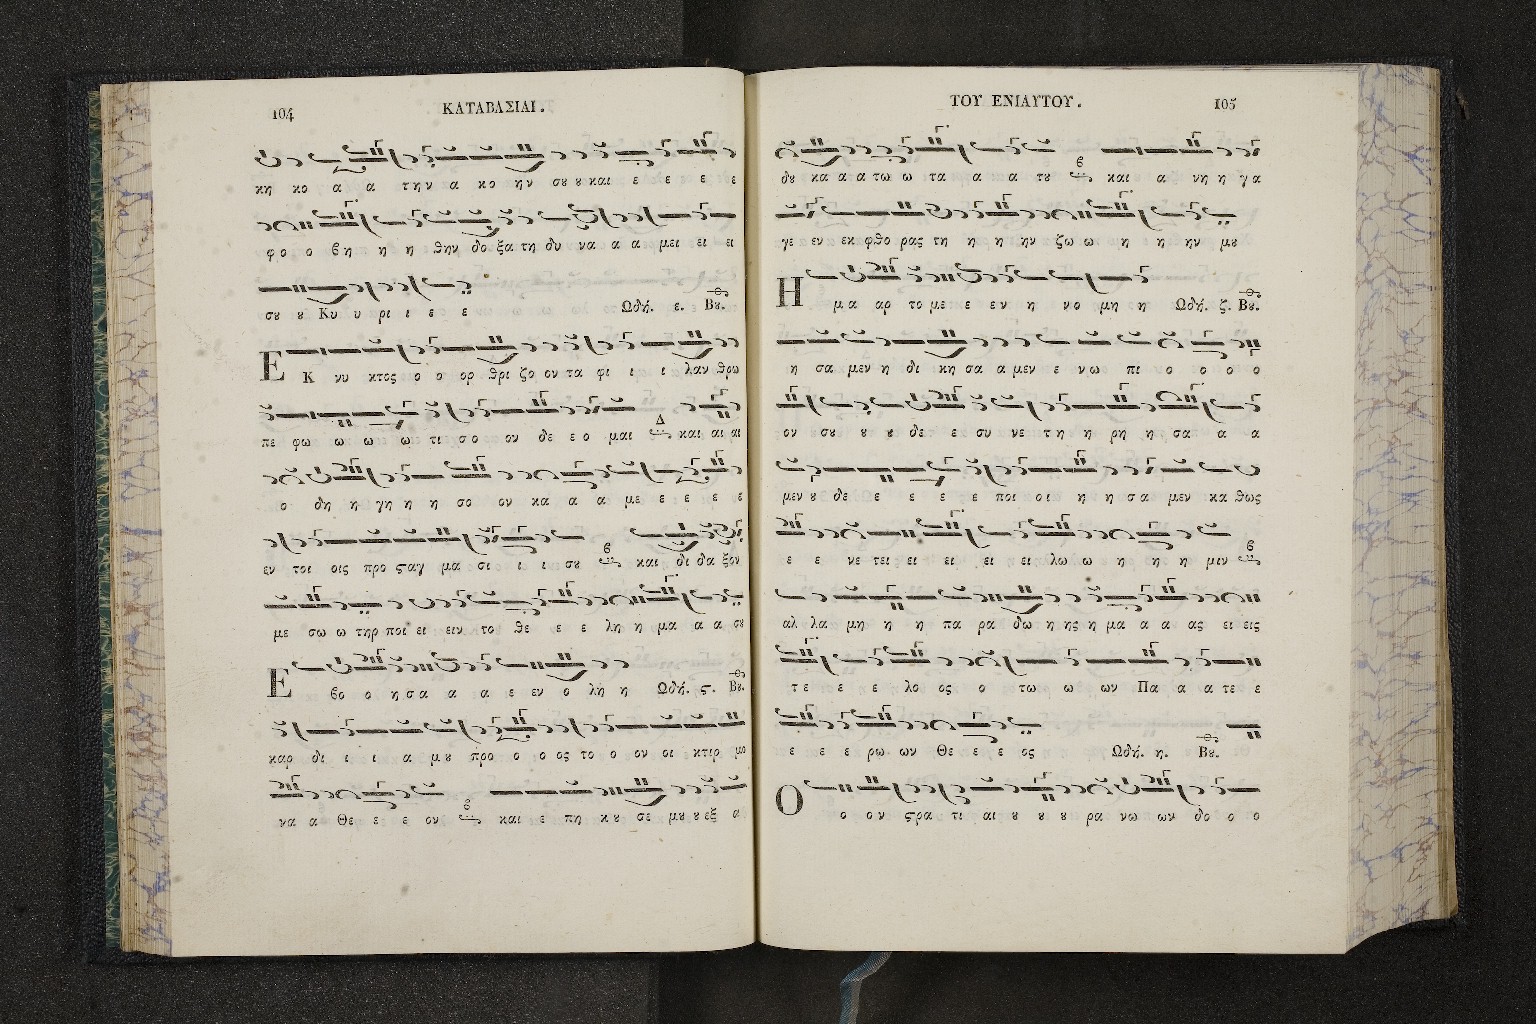 104 ΚΑΤΑΒΑΣΙΑΙ.
κη κο α α την α κο ην σου και ε ε ε ε
φο ο βη η η θην δο ξα τη δυ να α α μει ει ει
σου ου Κυ υ ρι ι ε ε Ωδή. ε. Βου.
Ε Κ νυ κτος ο ο ορ θρι ζο ον τα φι ι ι λαν θρω
πε φω ω ω ω τι σο ον δε ε ο μαι Δ και αι αι
ο δη η γη η η σο ον κα α α με ε ε ε ε
εν τοι οις προ ϛαγ μα σι ι ι σου β και δι δα ξον
με σω ω τηρ ποι ει ειν το θε ε ε λη η μα α α σου
Ε βο ο η σα α α ε εν ο λη η Ωδή. ϛ. Βου.
καρ δι ι ι α μου προ ο ο ος το ο ον οι κτιρ μο
να α Θε ε ε ον β και ε πη κου σε μου ου εξ α
ΤΟΥ ΕΝΙΑΥΤΟΥ. 105
δου κα α α τω ω τα α α του β και α νη η γα
γε εν εκ φθο ρας τη η η ην ζω ω η η ην μου
Η μα αρ το με ε εν η νο μη η Ωδή. ζ. Βου.
η σα μεν η δι κη σα α μεν ε νω πι ο ο ο ο
ον σου ου ου δε ε συ νε τη η ρη η σα α α
μεν ου δε ε ε ε ε ποι οι η η σα μεν κα θως
ε ε νε τει ει ει ει ει λω ω η η η μιν β
αλ λα μη η η πα ρα δω η ης η μα α α ας ει εις
τε ε ε λο ος ο τω ω ων Πα α α τε ε
ε ε ε ρω ων Θε ε ε ος Ωδή. η. Βου.
Ο ο ον ϛρα τι αι ου ου ου ρα νω ων δο ο ο